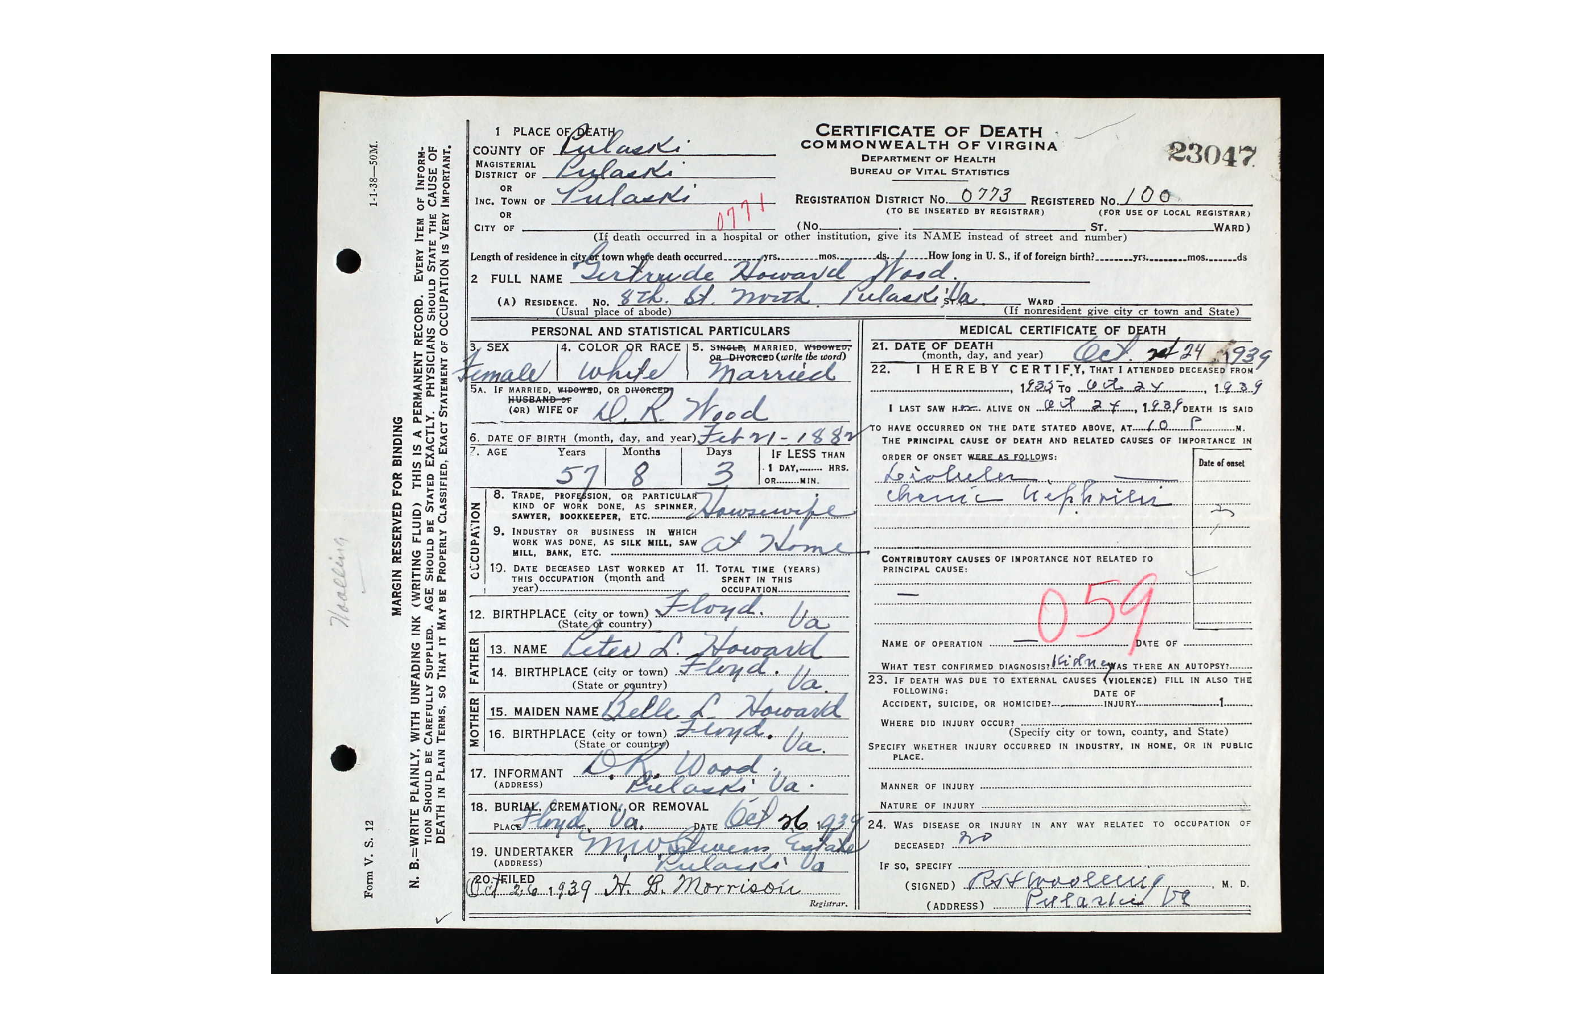 1-1-38—50M.
Form V. S. 12
MARGIN RESERVED FOR BINDING
N. B.—WRITE PLAINLY, WITH UNFADING INK (WRITING FLUID) THIS IS A PERMANENT RECORD. EVERY ITEM OF INFORM-
TION SHOULD BE CAREFULLY SUPPLIED. AGE SHOULD BE STATED EXACTLY. PHYSICIANS SHOULD STATE THE CAUSE OF
DEATH IN PLAIN TERMS, SO THAT IT MAY BE PROPERLY CLASSIFIED, EXACT STATEMENT OF OCCUPATION IS VERY IMPORTANT.
CERTIFICATE OF DEATH
COMMONWEALTH OF VIRGINA
DEPARTMENT OF HEALTH
BUREAU OF VITAL STATISTICS
23047
1 PLACE OF DEATH
COUNTY OF Pulaski
MAGISTERIAL DISTRICT OF Pulaski
OR
INC. TOWN OF Pulaski
OR
CITY OF
0771
REGISTRATION DISTRICT NO. 0773 REGISTERED NO. 100
(TO BE INSERTED BY REGISTRAR) (FOR USE OF LOCAL REGISTRAR)
(No. ST. WARD)
(If death occurred in a hospital or other institution, give its NAME instead of street and number)
Length of residence in city or town where death occurred yrs. mos. ds. How long in U. S., if of foreign birth? yrs. mos. ds
2 FULL NAME Gertrude Howard Wood.
(A) RESIDENCE. NO. 8th. St. North Pulaski Va ST. WARD
(Usual place of abode) (If nonresident give city or town and State)
PERSONAL AND STATISTICAL PARTICULARS
3. SEX Female
4. COLOR OR RACE White
5. SINGLE, MARRIED, WIDOWED, OR DIVORCED (write the word) Married
5A. IF MARRIED, WIDOWED, OR DIVORCED
HUSBAND OF
(OR) WIFE OF D. R. Wood
6. DATE OF BIRTH (month, day, and year) Feb 21-1882
7. AGE Years 57 Months 8 Days 3 IF LESS THAN 1 DAY, HRS. OR MIN.
OCCUPATION
8. TRADE, PROFESSION, OR PARTICULAR KIND OF WORK DONE, AS SPINNER, SAWYER, BOOKKEEPER, ETC. Housewife
9. INDUSTRY OR BUSINESS IN WHICH WORK WAS DONE, AS SILK MILL, SAW MILL, BANK, ETC. at Home
10. DATE DECEASED LAST WORKED AT THIS OCCUPATION (month and year)
11. TOTAL TIME (YEARS) SPENT IN THIS OCCUPATION
12. BIRTHPLACE (city or town) Floyd.
(State or country) Va
FATHER
13. NAME Peter L. Howard
14. BIRTHPLACE (city or town) Floyd.
(State or country) Va.
MOTHER
15. MAIDEN NAME Belle L Howard
16. BIRTHPLACE (city or town) Floyd.
(State or country) Va.
17. INFORMANT D. R. Wood.
(ADDRESS) Pulaski Va.
18. BURIAL, CREMATION, OR REMOVAL
PLACE Floyd. Va. DATE Oct 26 1939
19. UNDERTAKER Estate
(ADDRESS) Pulaski Va
20. FILED
Oct 26 1939 H. B. Morrison
Registrar.
MEDICAL CERTIFICATE OF DEATH
21. DATE OF DEATH
(month, day, and year) Oct. 24 1939
22. I HEREBY CERTIFY, THAT I ATTENDED DECEASED FROM
, 1935 TO Oct 24, 1939
I LAST SAW HER ALIVE ON Oct 24, 1939 DEATH IS SAID
TO HAVE OCCURRED ON THE DATE STATED ABOVE, AT 10 P M.
THE PRINCIPAL CAUSE OF DEATH AND RELATED CAUSES OF IMPORTANCE IN
ORDER OF ONSET WERE AS FOLLOWS: Date of onset
Diabetes
Chronic Nephritis
CONTRIBUTORY CAUSES OF IMPORTANCE NOT RELATED TO
PRINCIPAL CAUSE:
059
NAME OF OPERATION DATE OF
WHAT TEST CONFIRMED DIAGNOSIS? Kidney WAS THERE AN AUTOPSY?
23. IF DEATH WAS DUE TO EXTERNAL CAUSES (VIOLENCE) FILL IN ALSO THE
FOLLOWING: DATE OF
ACCIDENT, SUICIDE, OR HOMICIDE? INJURY 1
WHERE DID INJURY OCCUR?
(Specify city or town, county, and State)
SPECIFY WHETHER INJURY OCCURRED IN INDUSTRY, IN HOME, OR IN PUBLIC
PLACE.
MANNER OF INJURY
NATURE OF INJURY
24. WAS DISEASE OR INJURY IN ANY WAY RELATED TO OCCUPATION OF
DECEASED? no
IF SO, SPECIFY
(SIGNED) , M. D.
(ADDRESS) Pulaski Va